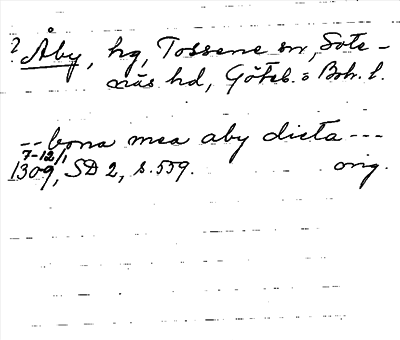 ? Åby, hg, Tossene sn, Sote-
näs hd, Göteb. o Boh. l.
-- bona mea aby dicta ---
7-12/1
1309, SD 2, s. 559. orig.